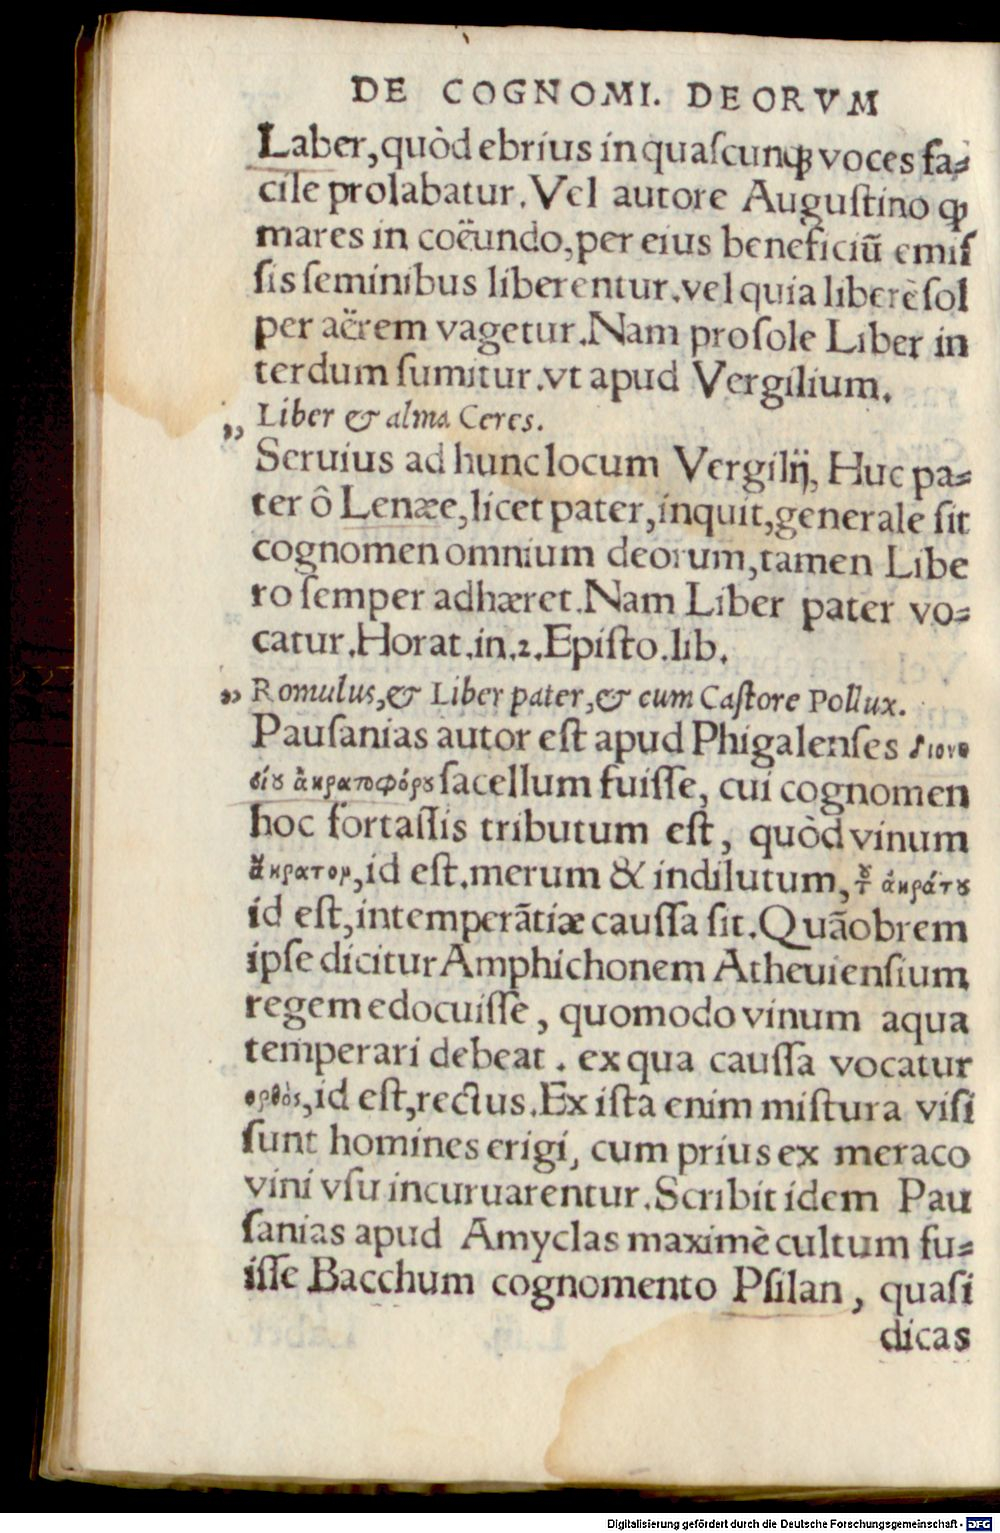 DE COGNOMI. DEORVM
Laber, quòd ebrius in quaſcunq; voces fa-
cile prolabatur. Vel autore Auguſtino ꝙ
mares in coëundo, per eius beneficiũ emiſ
ſis ſeminibus liberentur. vel quia liberè ſol
per aërem vagetur. Nam pro ſole Liber in
terdum ſumitur. vt apud Vergilium.
„ Liber & alma Ceres.
Seruius ad hunc locum Vergilij, Huc pa-
ter ô Lenæe, licet pater, inquit, generale ſit
cognomen omnium deorum, tamen Libe
ro ſemper adhæret. Nam Liber pater vo-
catur. Horat. in. 2. Epiſto. lib.
„ Romulus, & Liber pater, & cum Caſtore Pollux.
Pauſanias autor eſt apud Phigalenſes Διονυ
σίου ἀκρατοφόρου ſacellum fuiſſe, cui cognomen
hoc fortaſſis tributum eſt, quòd vinum
ἄκρατον, id eſt. merum & indilutum, τοῦ ἀκράτου
id eſt, intemperãtiæ cauſſa ſit. Quãobrem
ipſe dicitur Amphichonem Atheuienſium
regem edocuiſſe, quomodo vinum aqua
temperari debeat. ex qua cauſſa vocatur
ορθὸς, id eſt, rectus. Ex iſta enim miſtura viſi
ſunt homines erigi, cum prius ex meraco
vini vſu incuruarentur. Scribit idem Pau
ſanias apud Amyclas maximè cultum fu-
iſſe Bacchum cognomento Pſilan, quaſi
dicas
Digitalisierung gefördert durch die Deutsche Forschungsgemeinschaft - DFG